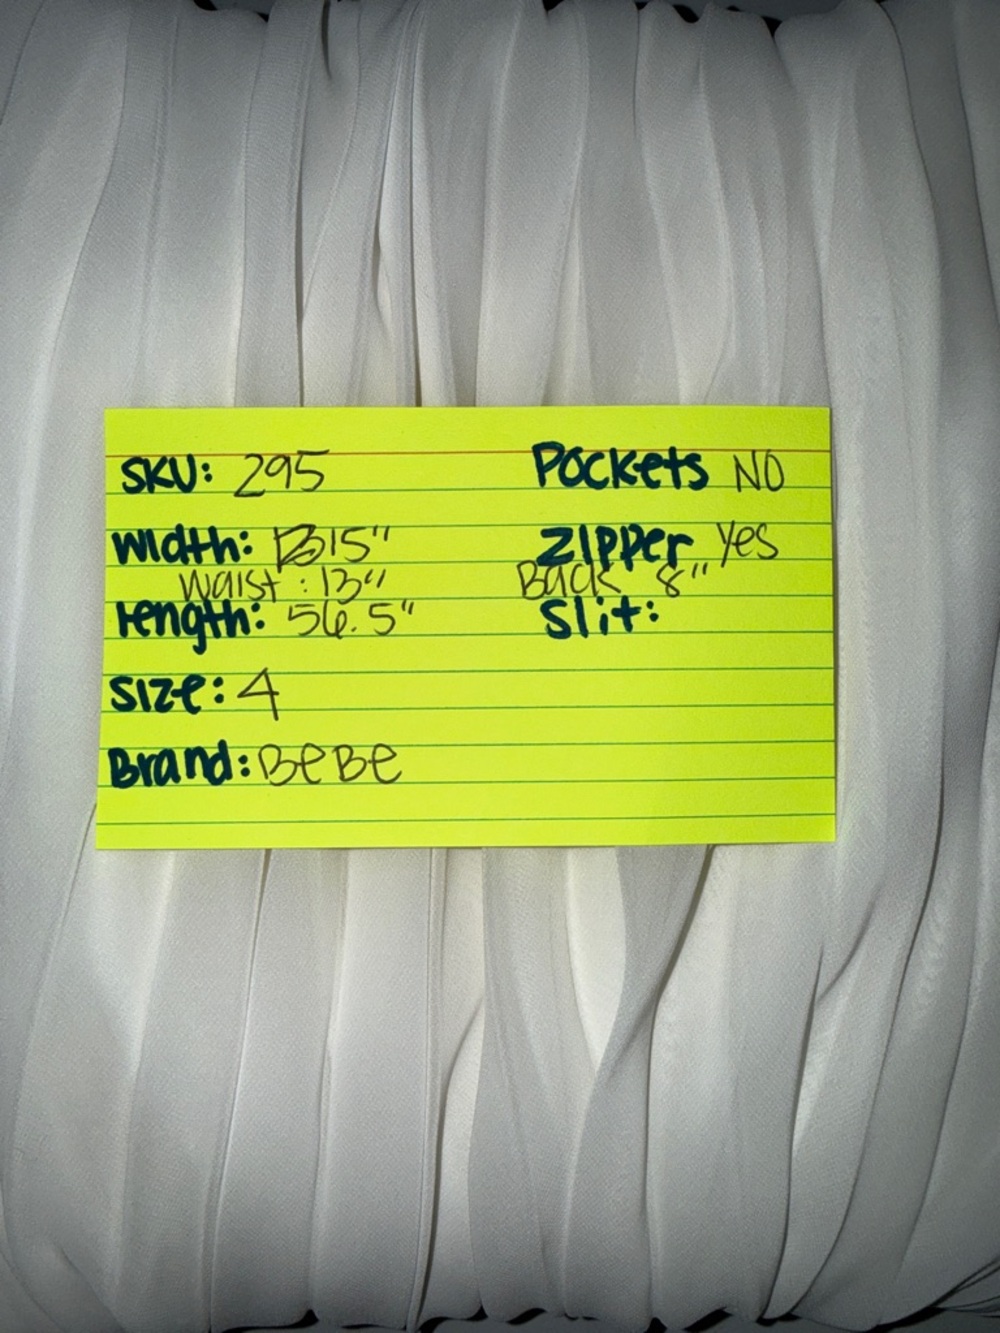 SKU: 295
Width: 15"
Waist: 13"
Length: 56.5"
Size: 4
Brand: BeBe
Pockets NO
Zipper Yes
Back 8"
Slit: